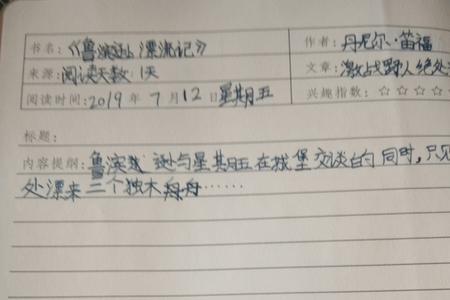 书名:《鲁滨逊漂流记》 作者:丹尼尔·笛福
来源:阅读天数:1天 文章:激战野人绝处
阅读时间:2019年7月12日星期五 兴趣指数:☆☆☆☆
标题:
内容提纲:鲁滨逊与星期五在城堡交谈的同时,只见
处漂来三个独木舟……